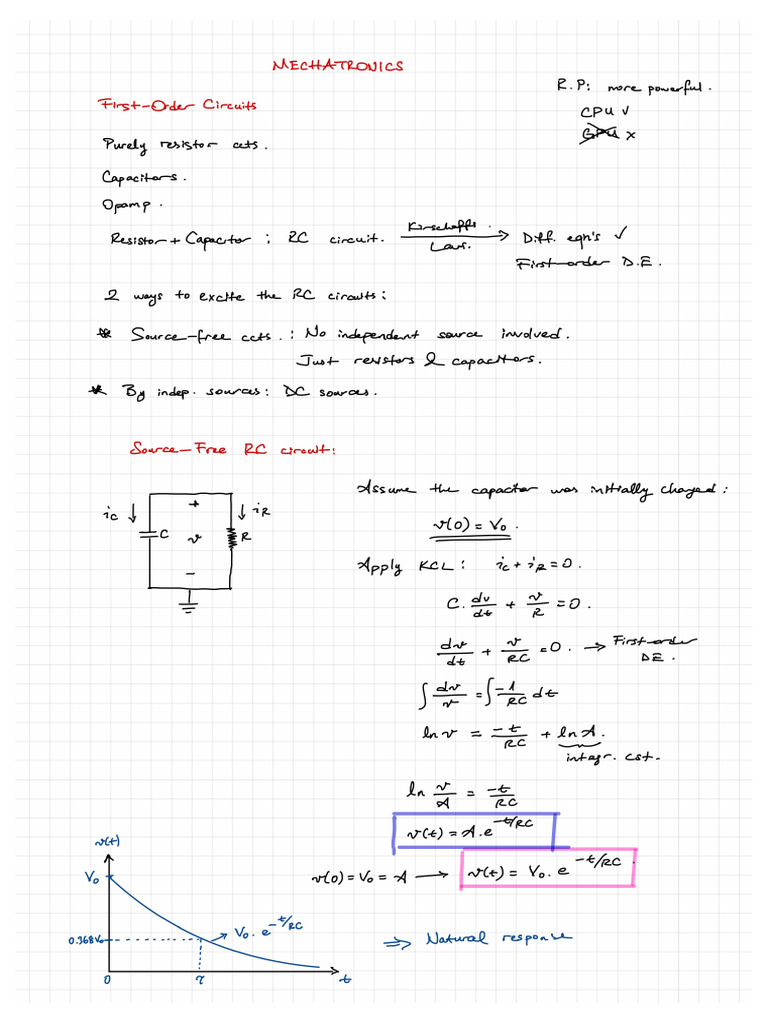 MECHATRONICS
R.P: more powerful.
CPU ✓
GPU x
First-Order Circuits
Purely resistor ccts.
Capacitors.
Opamp.
Resistor + Capacitor : RC circuit. Kirschoff's Laws. → Diff. eqn's ✓
First-order D.E.
2 ways to excite the RC circuits:
* Source-free ccts. : No independent source involved.
Just resistors & capacitors.
* By indep. sources: DC sources.
Source-Free RC circuit:
Assume the capacitor was initially charged:
v(0) = V₀.
iC ↓ + ↓ iR
C v R
−
Apply KCL: iC + iR = 0.
C. dv/dt + v/R = 0.
dv/dt + v/RC = 0. → First-order D.E.
∫ dv/v = ∫ -1/RC dt
ln v = -t/RC + ln A.
integr. cst.
ln v/A = -t/RC
v(t) = A.e^-t/RC
v(0) = V₀ = A → v(t) = V₀. e^-t/RC.
v(t)
V₀
V₀. e^-t/RC
0.368V₀
0 τ t
⇒ Natural response